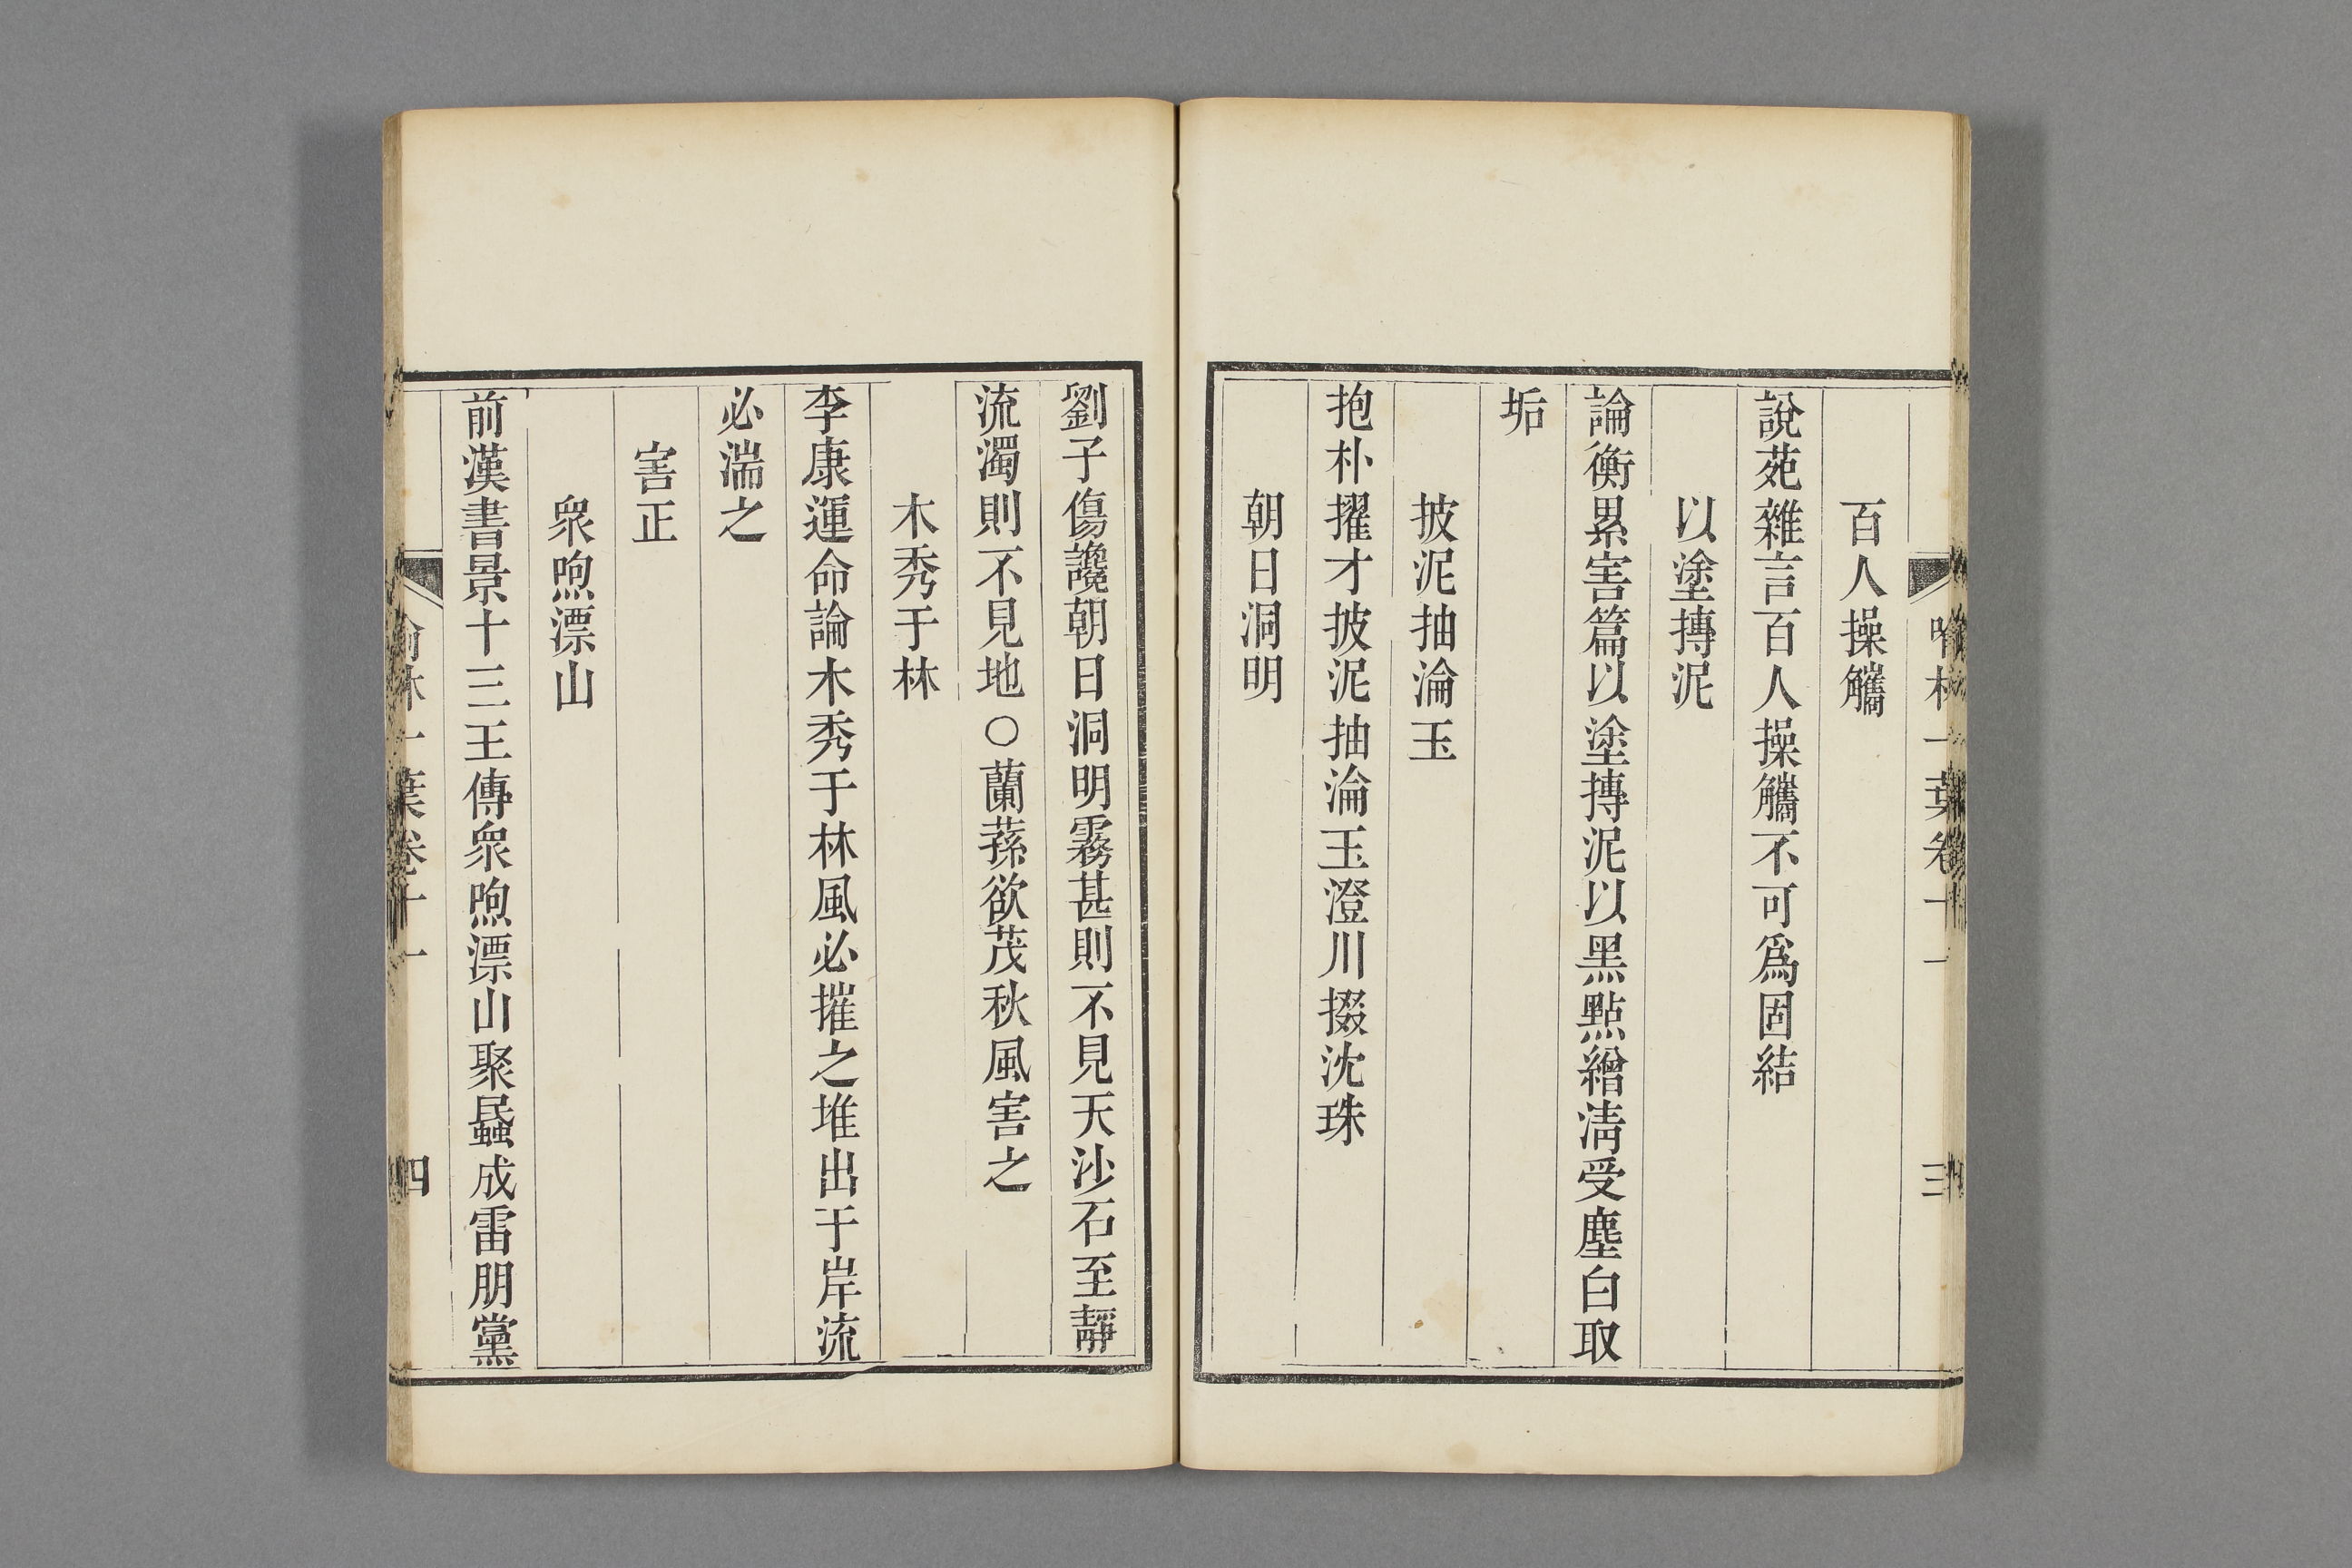 喻林一葉卷十一
三
百人操觿
說苑雜言百人操觿不可爲固結
以塗搏泥
論衡累害篇以塗搏泥以黑點繒淸受塵白取
垢
披泥抽淪玉
抱朴擢才披泥抽淪玉澄川掇沈珠
朝日洞明
劉子傷讒朝日洞明霧甚則不見天沙石至靜
流濁則不見地○蘭蓀欲茂秋風害之
木秀于林
李康運命論木秀于林風必摧之堆出于岸流
必湍之
害正
衆喣漂山
前漢書景十三王傳衆喣漂山聚蟁成雷朋黨
喻林一葉卷十一
四